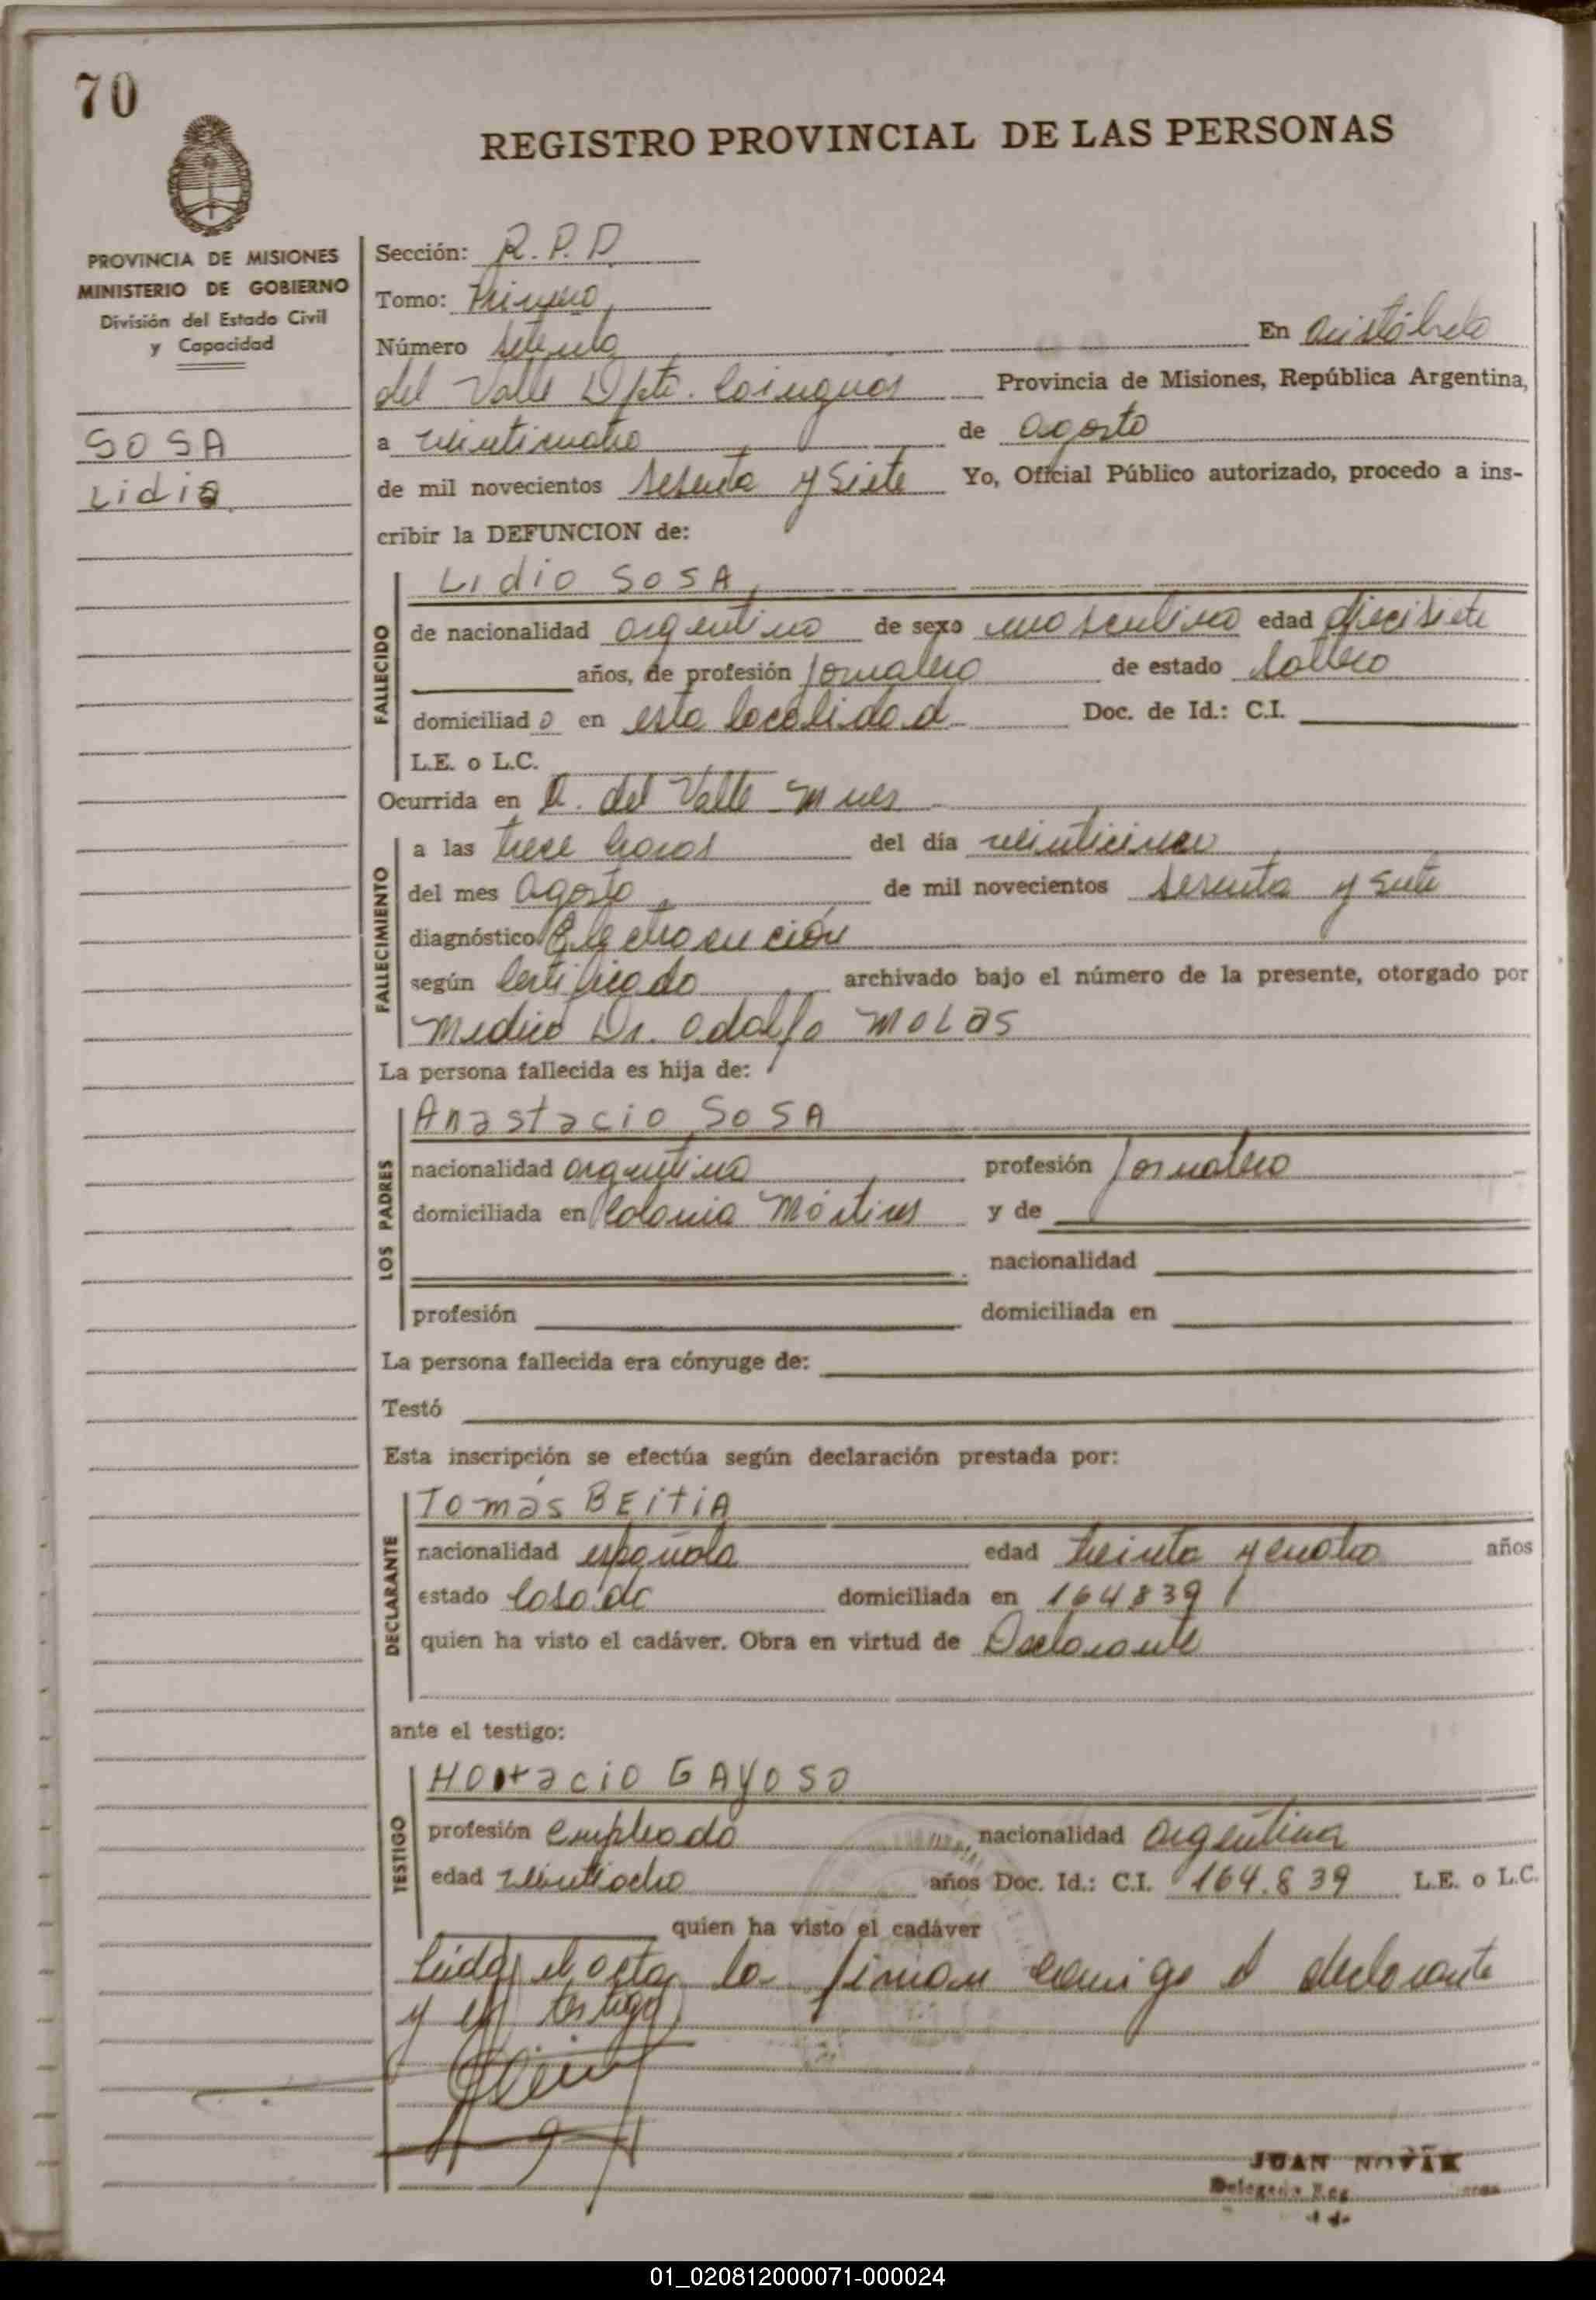 70
REGISTRO PROVINCIAL DE LAS PERSONAS
PROVINCIA DE MISIONES
MINISTERIO DE GOBIERNO
División del Estado Civil
y Capacidad
SOSA
Lidio
Sección: R.P.D.
Tomo: Primero
Número setenta En Aristóbulo
del Valle Dpto. Cainguas Provincia de Misiones, República Argentina,
a veinticuatro de agosto
de mil novecientos sesenta y siete Yo, Oficial Público autorizado, procedo a ins-
cribir la DEFUNCION de:
FALLECIDO
Lidio SOSA
de nacionalidad argentino de sexo masculino edad diecisiete
años, de profesión Jornalero de estado soltero
domiciliado en esta localidad Doc. de Id.: C.I.
L.E. o L.C.
Ocurrida en A. del Valle Mnes
FALLECIMIENTO
a las trece horas del día veinticinco
del mes agosto de mil novecientos sesenta y siete
diagnóstico Electrocución
según Certificado archivado bajo el número de la presente, otorgado por
Medico Dr. Adolfo MOLAS
La persona fallecida es hija de:
LOS PADRES
Anastacio SOSA
nacionalidad argentina profesión Jornalero
domiciliada en Colonia Mártires y de
nacionalidad
profesión domiciliada en
La persona fallecida era cónyuge de:
Testó
Esta inscripción se efectúa según declaración prestada por:
DECLARANTE
Tomás BEITIA
nacionalidad española edad treinta y cuatro años
estado Casado domiciliada en 164839
quien ha visto el cadáver. Obra en virtud de Declarante
ante el testigo:
TESTIGO
Horacio GAYOSO
profesión empleado nacionalidad argentina
edad veintiocho años Doc. Id.: C.I. 164.839 L.E. o L.C.
quien ha visto el cadáver
Leída el acta, la firman conmigo el declarante
y el testigo
JUAN NOVAK
01_020812000071-000024